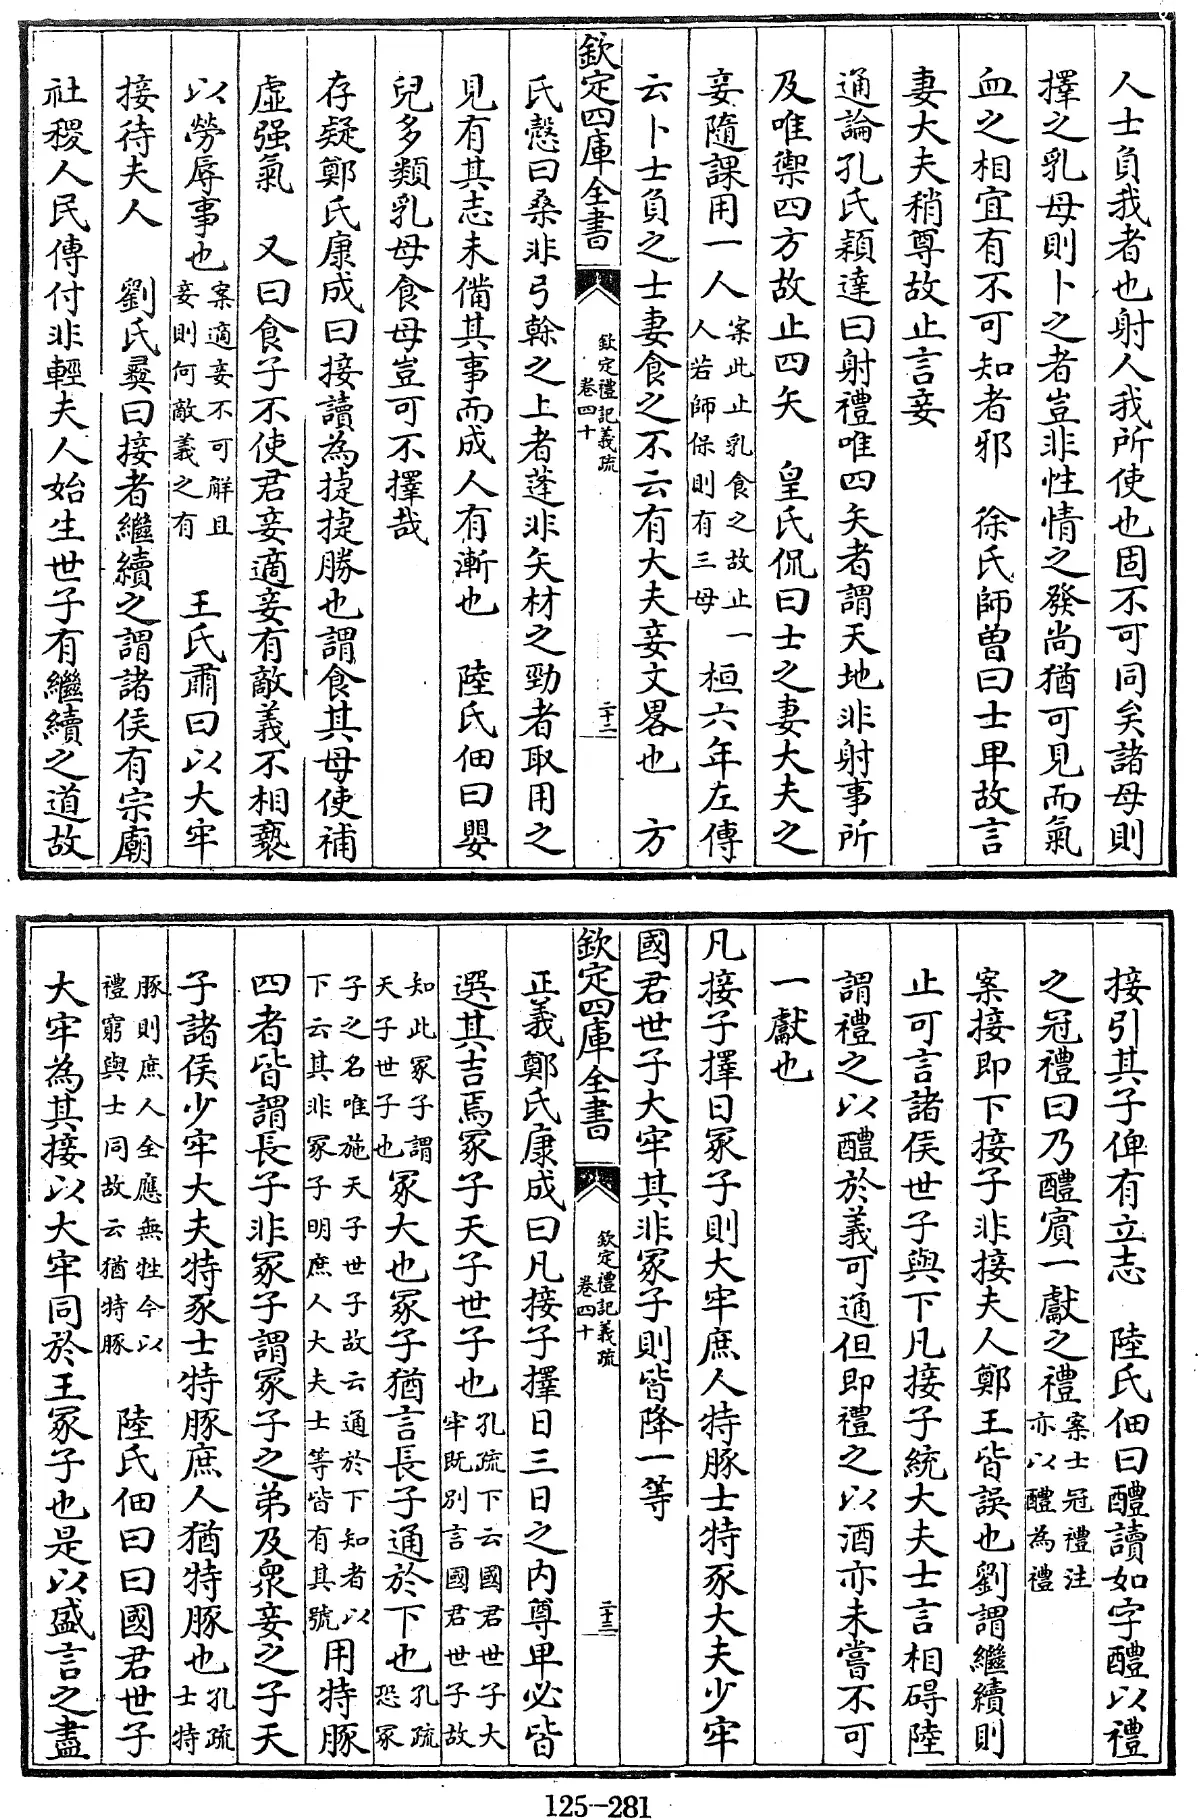 人士負我者也射人我所使也固不可同矣諸母則
擇之乳母則卜之者豈非性情之發尚猶可見而氣
血之相宜有不可知者邪　徐氏師曾曰士卑故言
妻大夫稍尊故止言妾
通論孔氏穎達曰射禮唯四矢者謂天地非射事所
及唯禦四方故止四矢　皇氏侃曰士之妻大夫之
妾隨課用一人案此止乳食之故止一人若師保則有三母　桓六年左傳
云卜士負之士妻食之不云有大夫妾文畧也　方
欽定四庫全書
欽定禮記義疏
卷四十
二十二
氏慤曰桑非弓榦之上者蓬非矢材之勁者取用之
見有其志未備其事而成人有漸也　陸氏佃曰嬰
兒多類乳母食母豈可不擇哉
存疑鄭氏康成曰接讀為捷捷勝也謂食其母使補
虛强氣　又曰食子不使君妾適妾有敵義不相褻
以勞辱事也案適妾不可解且妾則何敵義之有　王氏肅曰以大牢
接待夫人　劉氏彝曰接者繼續之謂諸侯有宗廟
社稷人民傳付非輕夫人始生世子有繼續之道故
接引其子俾有立志　陸氏佃曰醴讀如字醴以禮
之冠禮曰乃醴賓一獻之禮案士冠禮注亦以醴為禮
案接即下接子非接夫人鄭王皆誤也劉謂繼續則
止可言諸侯世子與下凡接子統大夫士言相碍陸
謂禮之以醴於義可通但即禮之以酒亦未嘗不可
一獻也
凡接子擇日冢子則大牢庶人特豚士特豕大夫少牢
國君世子大牢其非冢子則皆降一等
欽定四庫全書
欽定禮記義疏
卷四十
二十三
正義鄭氏康成曰凡接子擇日三日之内尊卑必皆
選其吉焉冢子天子世子也孔疏下云國君世子大牢既别言國君世子故
知此冢子謂天子世子也冢大也冢子猶言長子通於下也孔疏恐冢
子之名唯施天子世子故云通於下知者以下云其非冢子明庶人大夫士等皆有其號用特豚
四者皆謂長子非冢子謂冢子之弟及衆妾之子天
子諸侯少牢大夫特豕士特豚庶人猶特豚也孔疏士特
豚則庶人全應無牲今以禮窮與士同故云猶特豚　陸氏佃曰曰國君世子
大牢為其接以大牢同於王冢子也是以盛言之盡
125-281